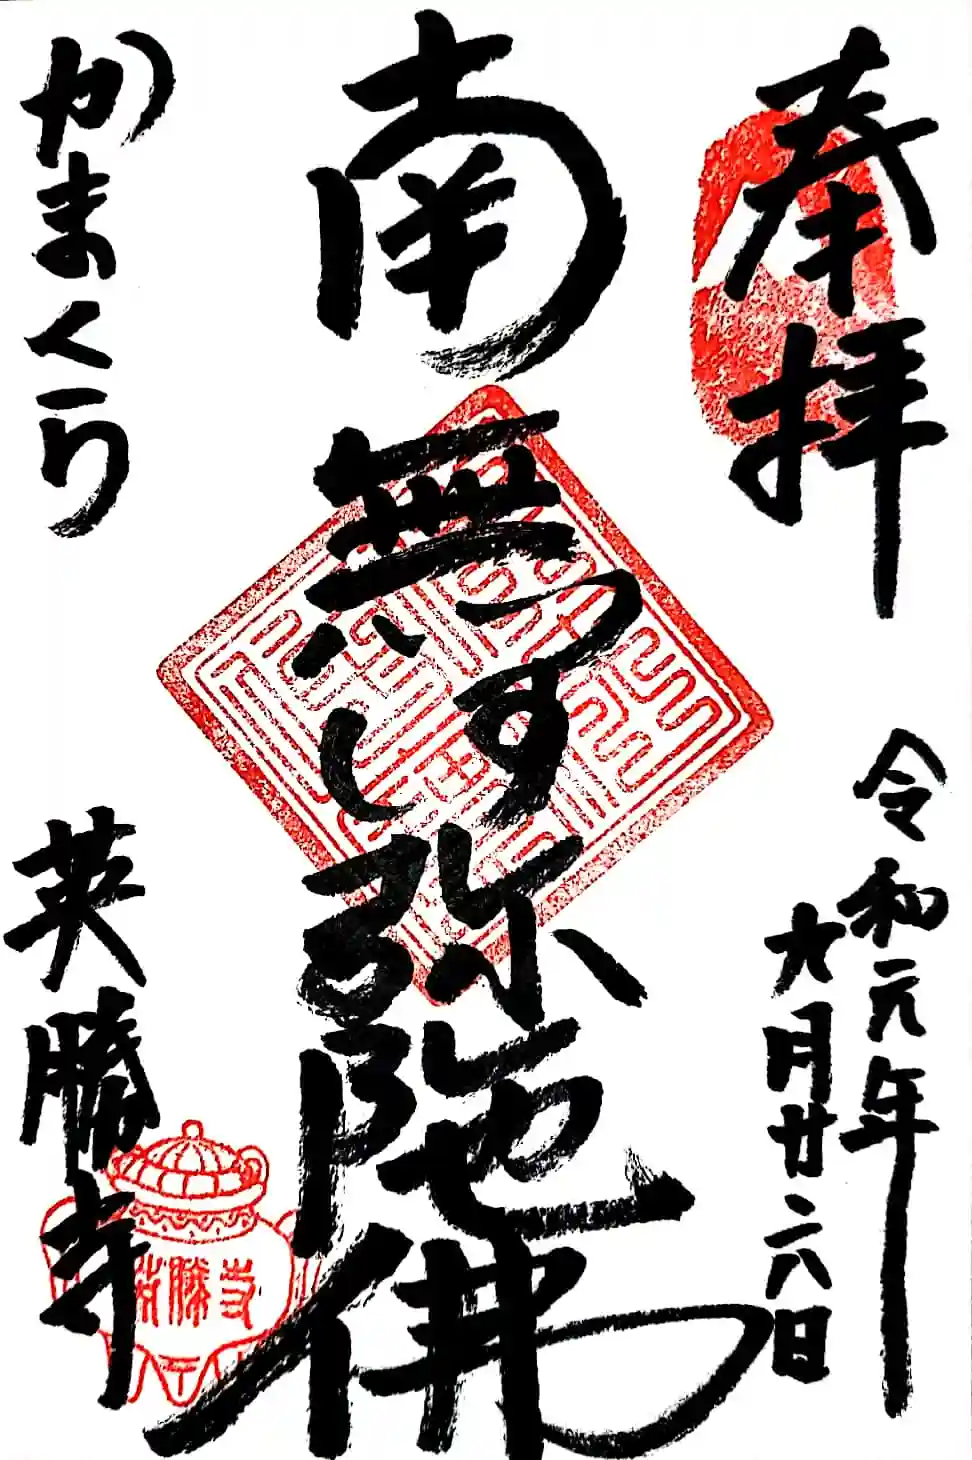 奉拝
令和元年
九月廿六日
南無阿弥陀佛
かまくら
英勝寺
英勝寺